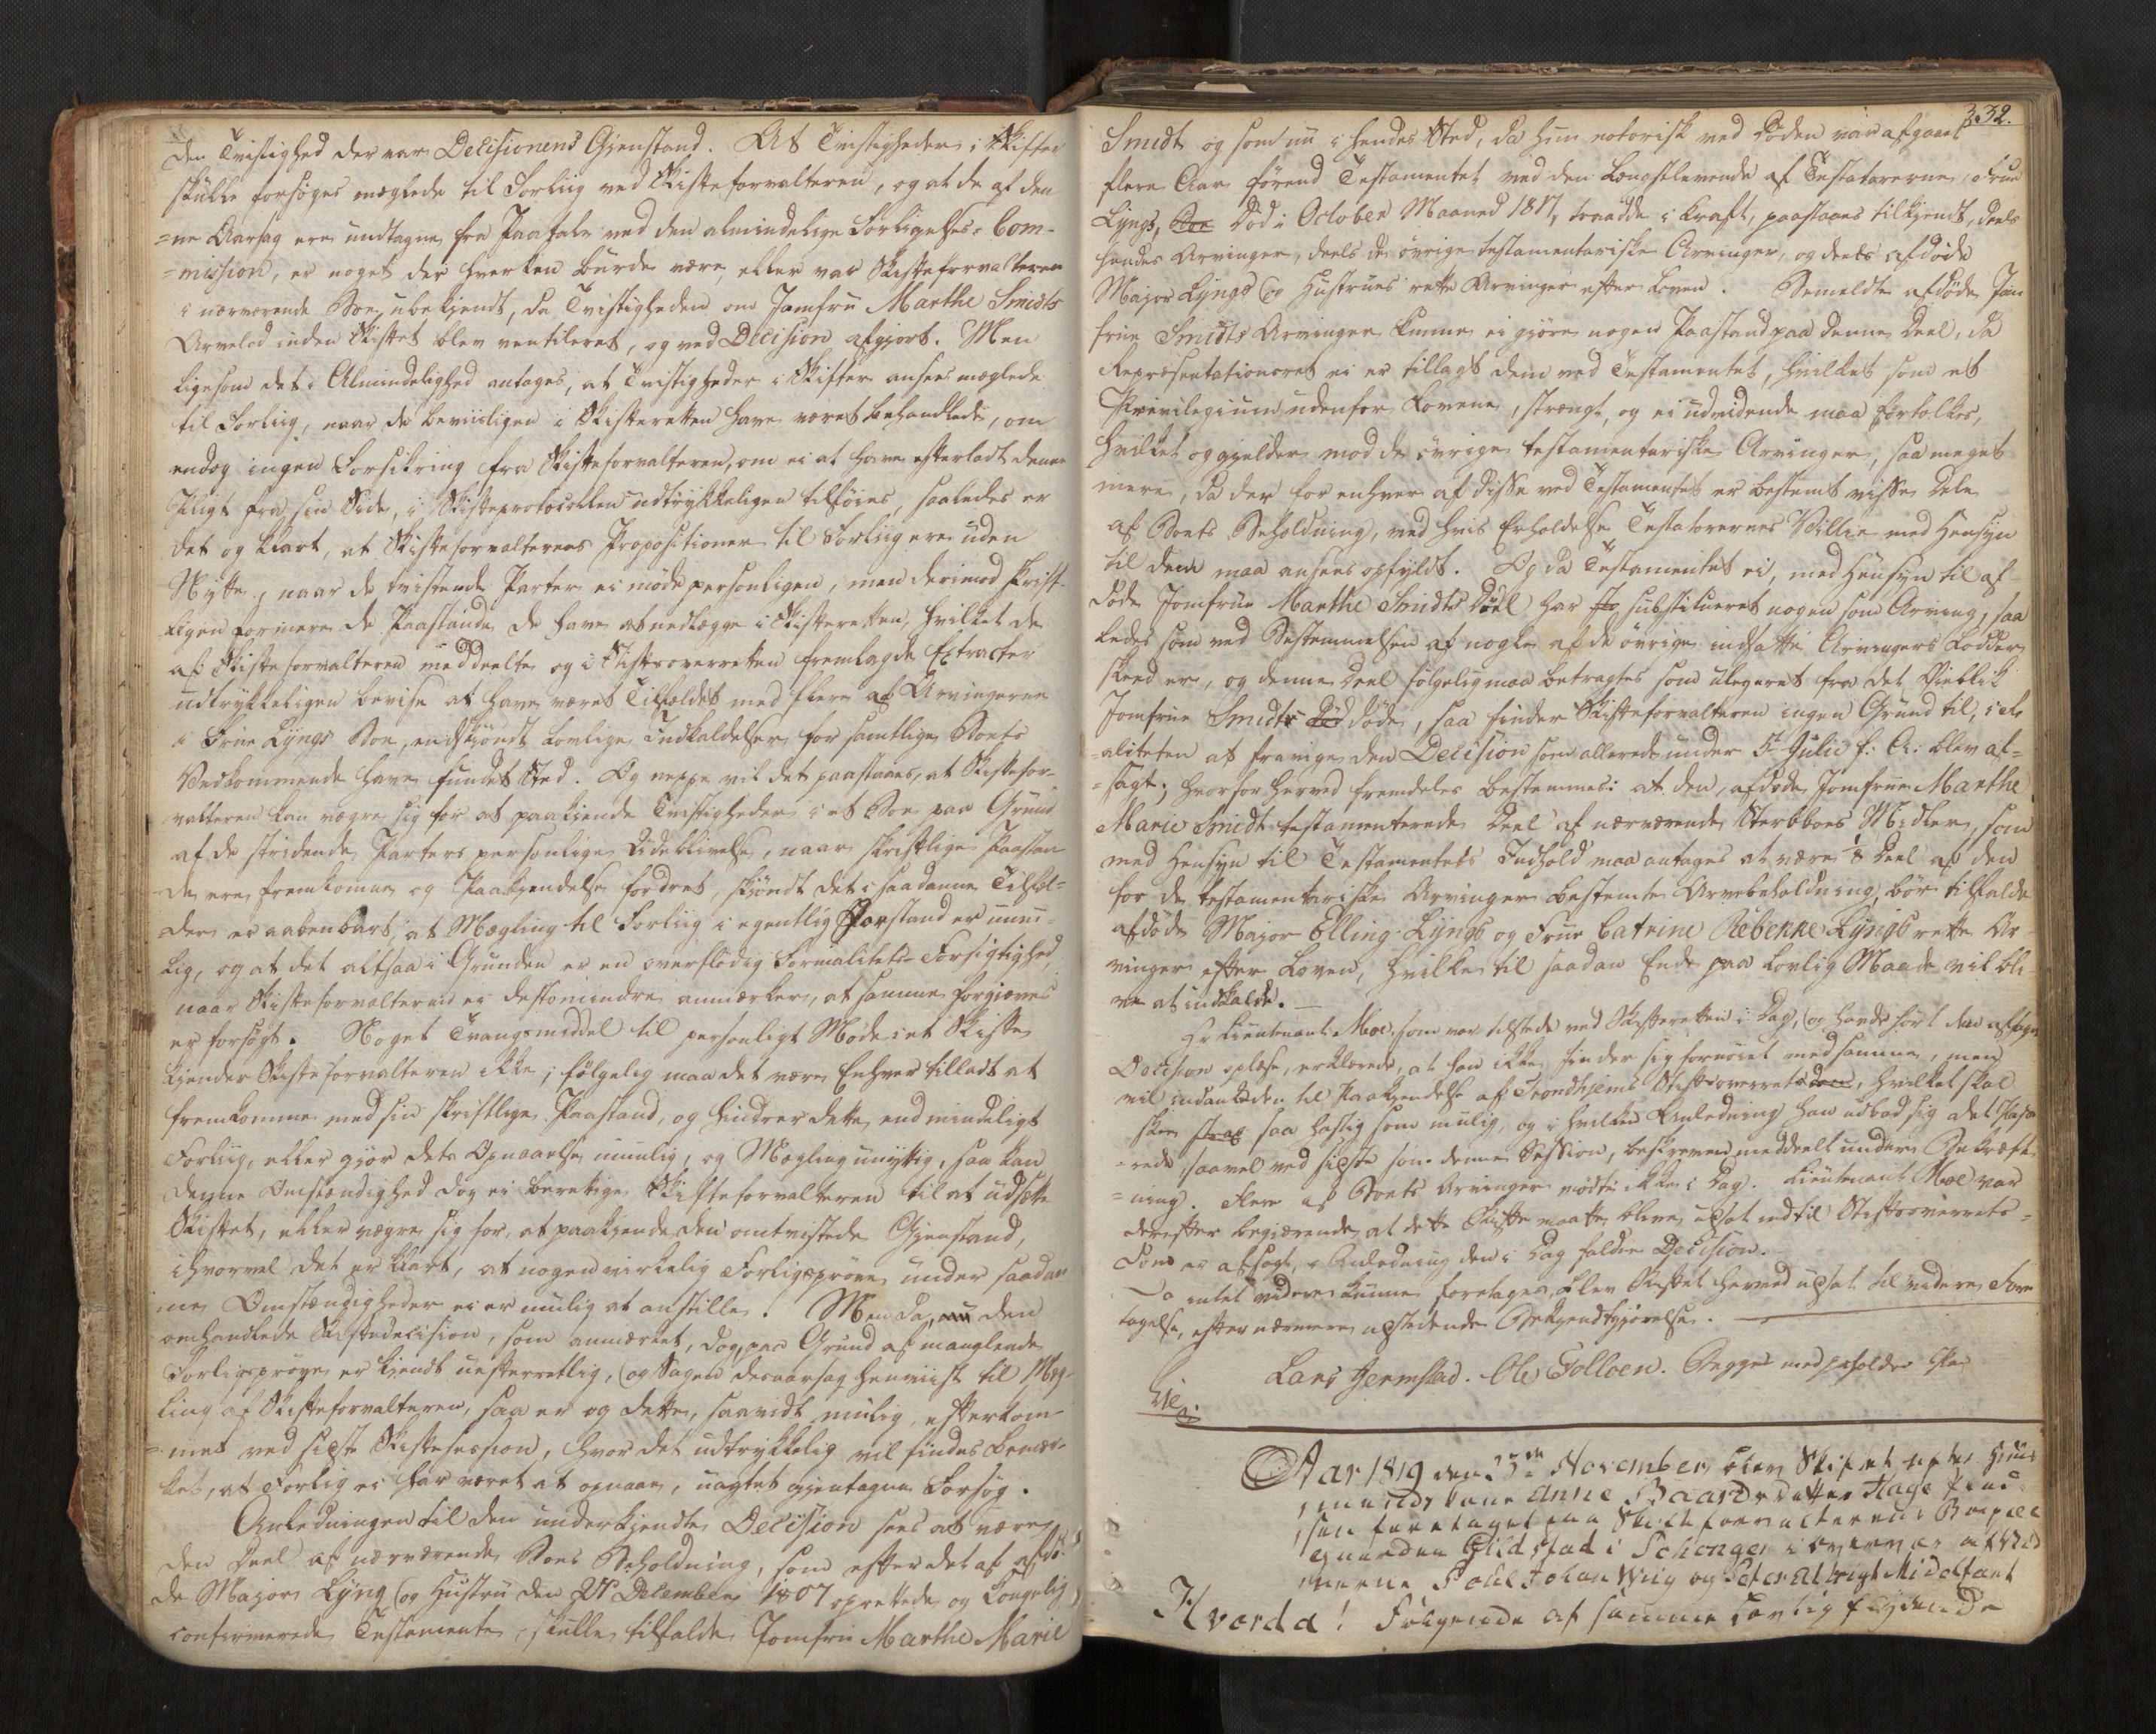 den Tvistighed der var Decisionens Gjenstand. At Tvistigheder i Skifter
skulle forsøges mæglede til Forliig ved Skifteforvalteren, og at de af den-
=ne Aarsag ere undtagne fra Paatale ved den almindelige Forligelses-Com-
=mission, er noget der hverken burde være, eller var Skifteforvalteren
i nærværende Boe, ubekjendt, da Tvistigheden om Jomfru Marthe Smidts
Arvelod inden Skiftet blev ventileret, og ved Decision afgjort. Men
ligesom det i Almindelighed antages, at Tvistigheder i Skifter ansees mæglede
til Forliig, naar de beviisligen i Skifteretten have været behandlede, om
endog ingen Forsikring fra Skifteforvalteren, om ei at have efterladt denne
Pligt fra sin Side, i Skifteprotocollen udtrykkeligen tilføies, saaledes er
det og klart, at Skifteforvalterens Propositioner til Forliig ere uden
Nytte, naar de tvistende Parter ei møde personligen, men derimod skrift-
ligen formere de Paastande de have at nedlægge i Skifteretten, hvilket de
af Skifteforvalteren meddeelte og i Stiftsoverretten fremlagde Extracter
udtrykkeligen bevise at have været Tilfældet med flere af Arvingerne
i Frue Lyngs Boe, endskjøndt lovlige Indkaldelser for samtlige Boets
Vedkommende have fundet Sted. Og neppe vil det paastaaes, at Skiftefor-
valteren kan vægre sig for at paakjende Tvistigheder i et Boe paa Grund
af de stridende Parters personlige Udeblivelse, naar skriftlige Paastan-
de ere fremkomne og Paakjendelse fordret, skjøndt det i saadanne Tilfæl-
der er aabenbart, at Mægling til Forliig i egentlig Forstand er umu-
lig, og at det altsaa i Grunden er en overflødig Formalitets-Forsigtighed,
naar Skifteforvalteren ei destomindre anmærker, at samme forgjæves
er forsøgt. Noget Tvangsmiddel til personligt Møde i et Skifte
kjender Skifteforvalteren ikke; følgelig maa det være Enhver tilladt at
fremkomme med sin skriftlige Paastand, og hindrer dette end mindeligt
Forliig, eller gjør dets Opnaaelse umulig, og Mægling unyttig, saa kan
denne Omstændighed dog ei berettige Skifteforvalteren til at udsætte
Skiftet, eller vægre sig for, at paakjende den omtvistede Gjenstand,
ihvorvel det er klart, at nogen virkelig Forligsprøve under saadan-
ne Omstændigheder ei er mulig at anstille. Men da nu den
omhandlede Skiftedecision, som anmærket, dog, paa Grund af manglende
Forligsprøve er kjendt uefterrettlig, (og Sagen desaarsag henviist til Mæg-
ling af Skifteforvalteren, saa er og dette, saavidt mulig, efterkom-
=met ved sidste Skiftesession, hvor det udtrykkelig vil findes bemær-
ket, at Forlig ei har været at opnaae, uagtet gjentagne Forsøg.
Anledningen til den underkjendte Decision sees at være
den Deel af nærværende Boes Beholdning, som efter det af afdø-
de Major Lyng (og Hustru den 21 December 1807 oprettede og Kongelig
confirmerede Testamente, skulle tilfalde Jomfru Marthe Marie
332.
Smidt og som nu i hendes Sted, da hun notorisk ved Døden var afgaaet
flere Aar førend Testamentet ved den Længstlevende af Testatorerne, Frue
Lyngs, Boe Død i October Maaned 1817, traadde i Kraft, paastaaes tilkjendt, deels
hendes Arvinger, deels de øvrige testamentariske Arvinger, og deels afdøde
Major Lyngs (og Hustrues rette Arvinger efter Loven. Bemeldte afdøde Jom
frue Smidts Arvinger kunne ei gjøre nogen Paastand paa denne Deel, da
Repræsentationsret ei er tillagt dem ved Testamentet, hvilket som et
Privilegium udenfor Lovene, strængt, og ei udvidende maa fortolkes,
hvilket og gjelder mod de øvrige testamentariske Arvinger, saa meget
mere, da der for enhver af disse ved Testamentet er bestemt visse Dele
af Boets Beholdning, ved hvis Erholdelse Testatorernes Villie med Hensyn
til dem maa ansees opfyldt. Og da Testamentet ei, med Hensyn til af-
døde Jomfrue Marthe Smidts Deel har substitueret nogen som Arving, saa
ledes som ved Bestemmelsen af nogle af de øvrige indsatte Arvingers Lodder
skeed er, og denne Deel følgelig maa betragtes som ulegeret fra det Øieblik
Jomfrue Smidt død døde, saa finder Skifteforvalteren ingen Grund til, i re-
aliteten at fravige den Decision som allerede under 5te Julii f: A: blev af-
=sagt; hvorfor herved fremdeles bestemmes: at den, afdøde Jomfrue Marthe
Marie Smidt testamenterede Deel af nærværende Sterbboes Midler, som
med Hensyn til Testamentets Indhold maa antages at være 1/8 Deel af den
for de testamentariske Arvinger bestemte Arvebeholdning, bør tilfalde
afdøde Major Elling Lyngs og Frue Catrine Rebekke Lyngs rette Ar-
vinger efter Loven, hvilke til saadan Ende paa lovlig Maade vil bli-
ve at indkalde.
Hr Lieutenant Moe, som var tilstede ved Skifteretten i Dag, (og havde hørt den afsagte
Decision oplæse, erklærede, at han ikke finder sig fornøiet med samme, men
vil indanke den til Paakjendelse af Trondhjems Stiftsoverret, hvilket skal
skee strax saa hastig som mulig, og i hvilken Anledning han udbad sig det Passe
=rede saavel ved sidste som denne Session, beskreven meddeelt under Bekræft-
=ning. Flere af Boets Arvinger mødte ikke i Dag. Lieutenant Moe var
derefter begjærende, at dette Skifte maatte blive udsat indtil Stiftsoverrets-
Dom er afsagt, i Anledning den i Dag faldne Decision.
Da intet videre kunne foretages, blev Skiftet herved udsat til videre Fore
tagelse, efter nærmere udstedende Bekjendtgjørelse.
Lars Jermstad. Ole Tolloen. Begges med paaholden Pen
Lie.
Aar 1819 den 23de November blev Skiftet efter Huus
mands Kone Anne Baardsdatter Hage
foretaget paa Skifteforvalterens Boepæl
Gaarden Gildstad i Schongen i Overvær af Vid
nerne Poul Johan Wiig og Peter Albrigt Midelfart
Hvorda! Følgende af samme Lovlig